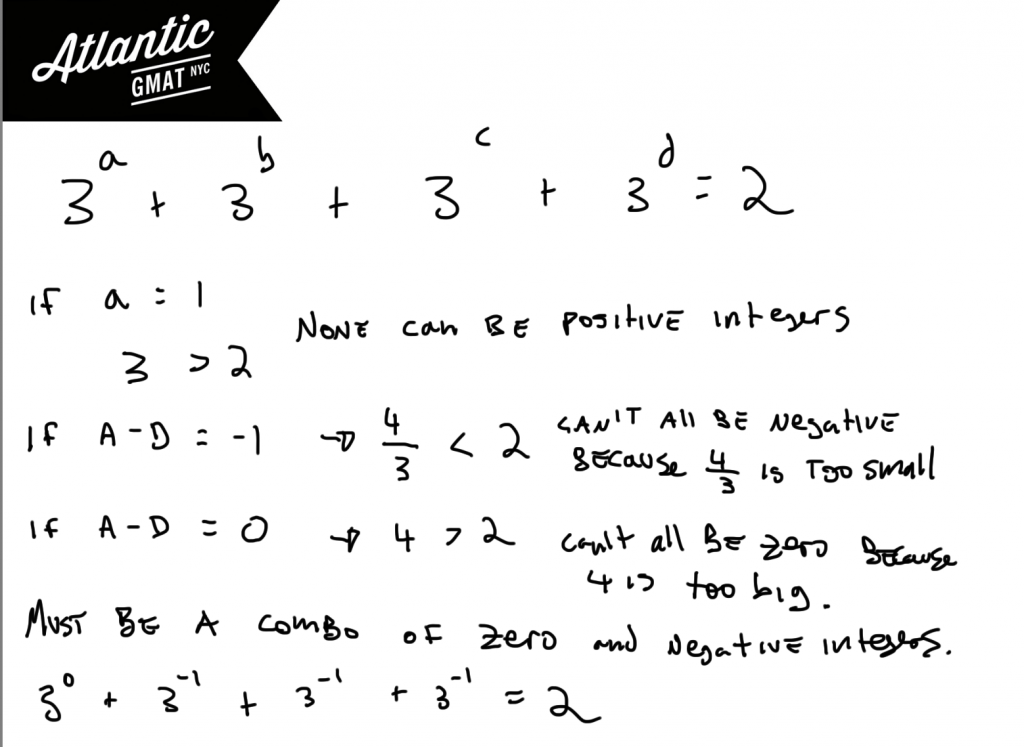 Atlantic
GMAT NYC
3^a + 3^b + 3^c + 3^d = 2
IF a = 1
3 > 2
NONE can BE POSITIVE integers
IF A-D = -1 → 4/3 < 2
CAN'T All BE Negative
BECause 4/3 is Too small
IF A-D = 0 → 4 > 2
can't all BE zero Because
4 is too big.
MUST BE A comBo oF zero and Negative integers.
3^0 + 3^-1 + 3^-1 + 3^-1 = 2